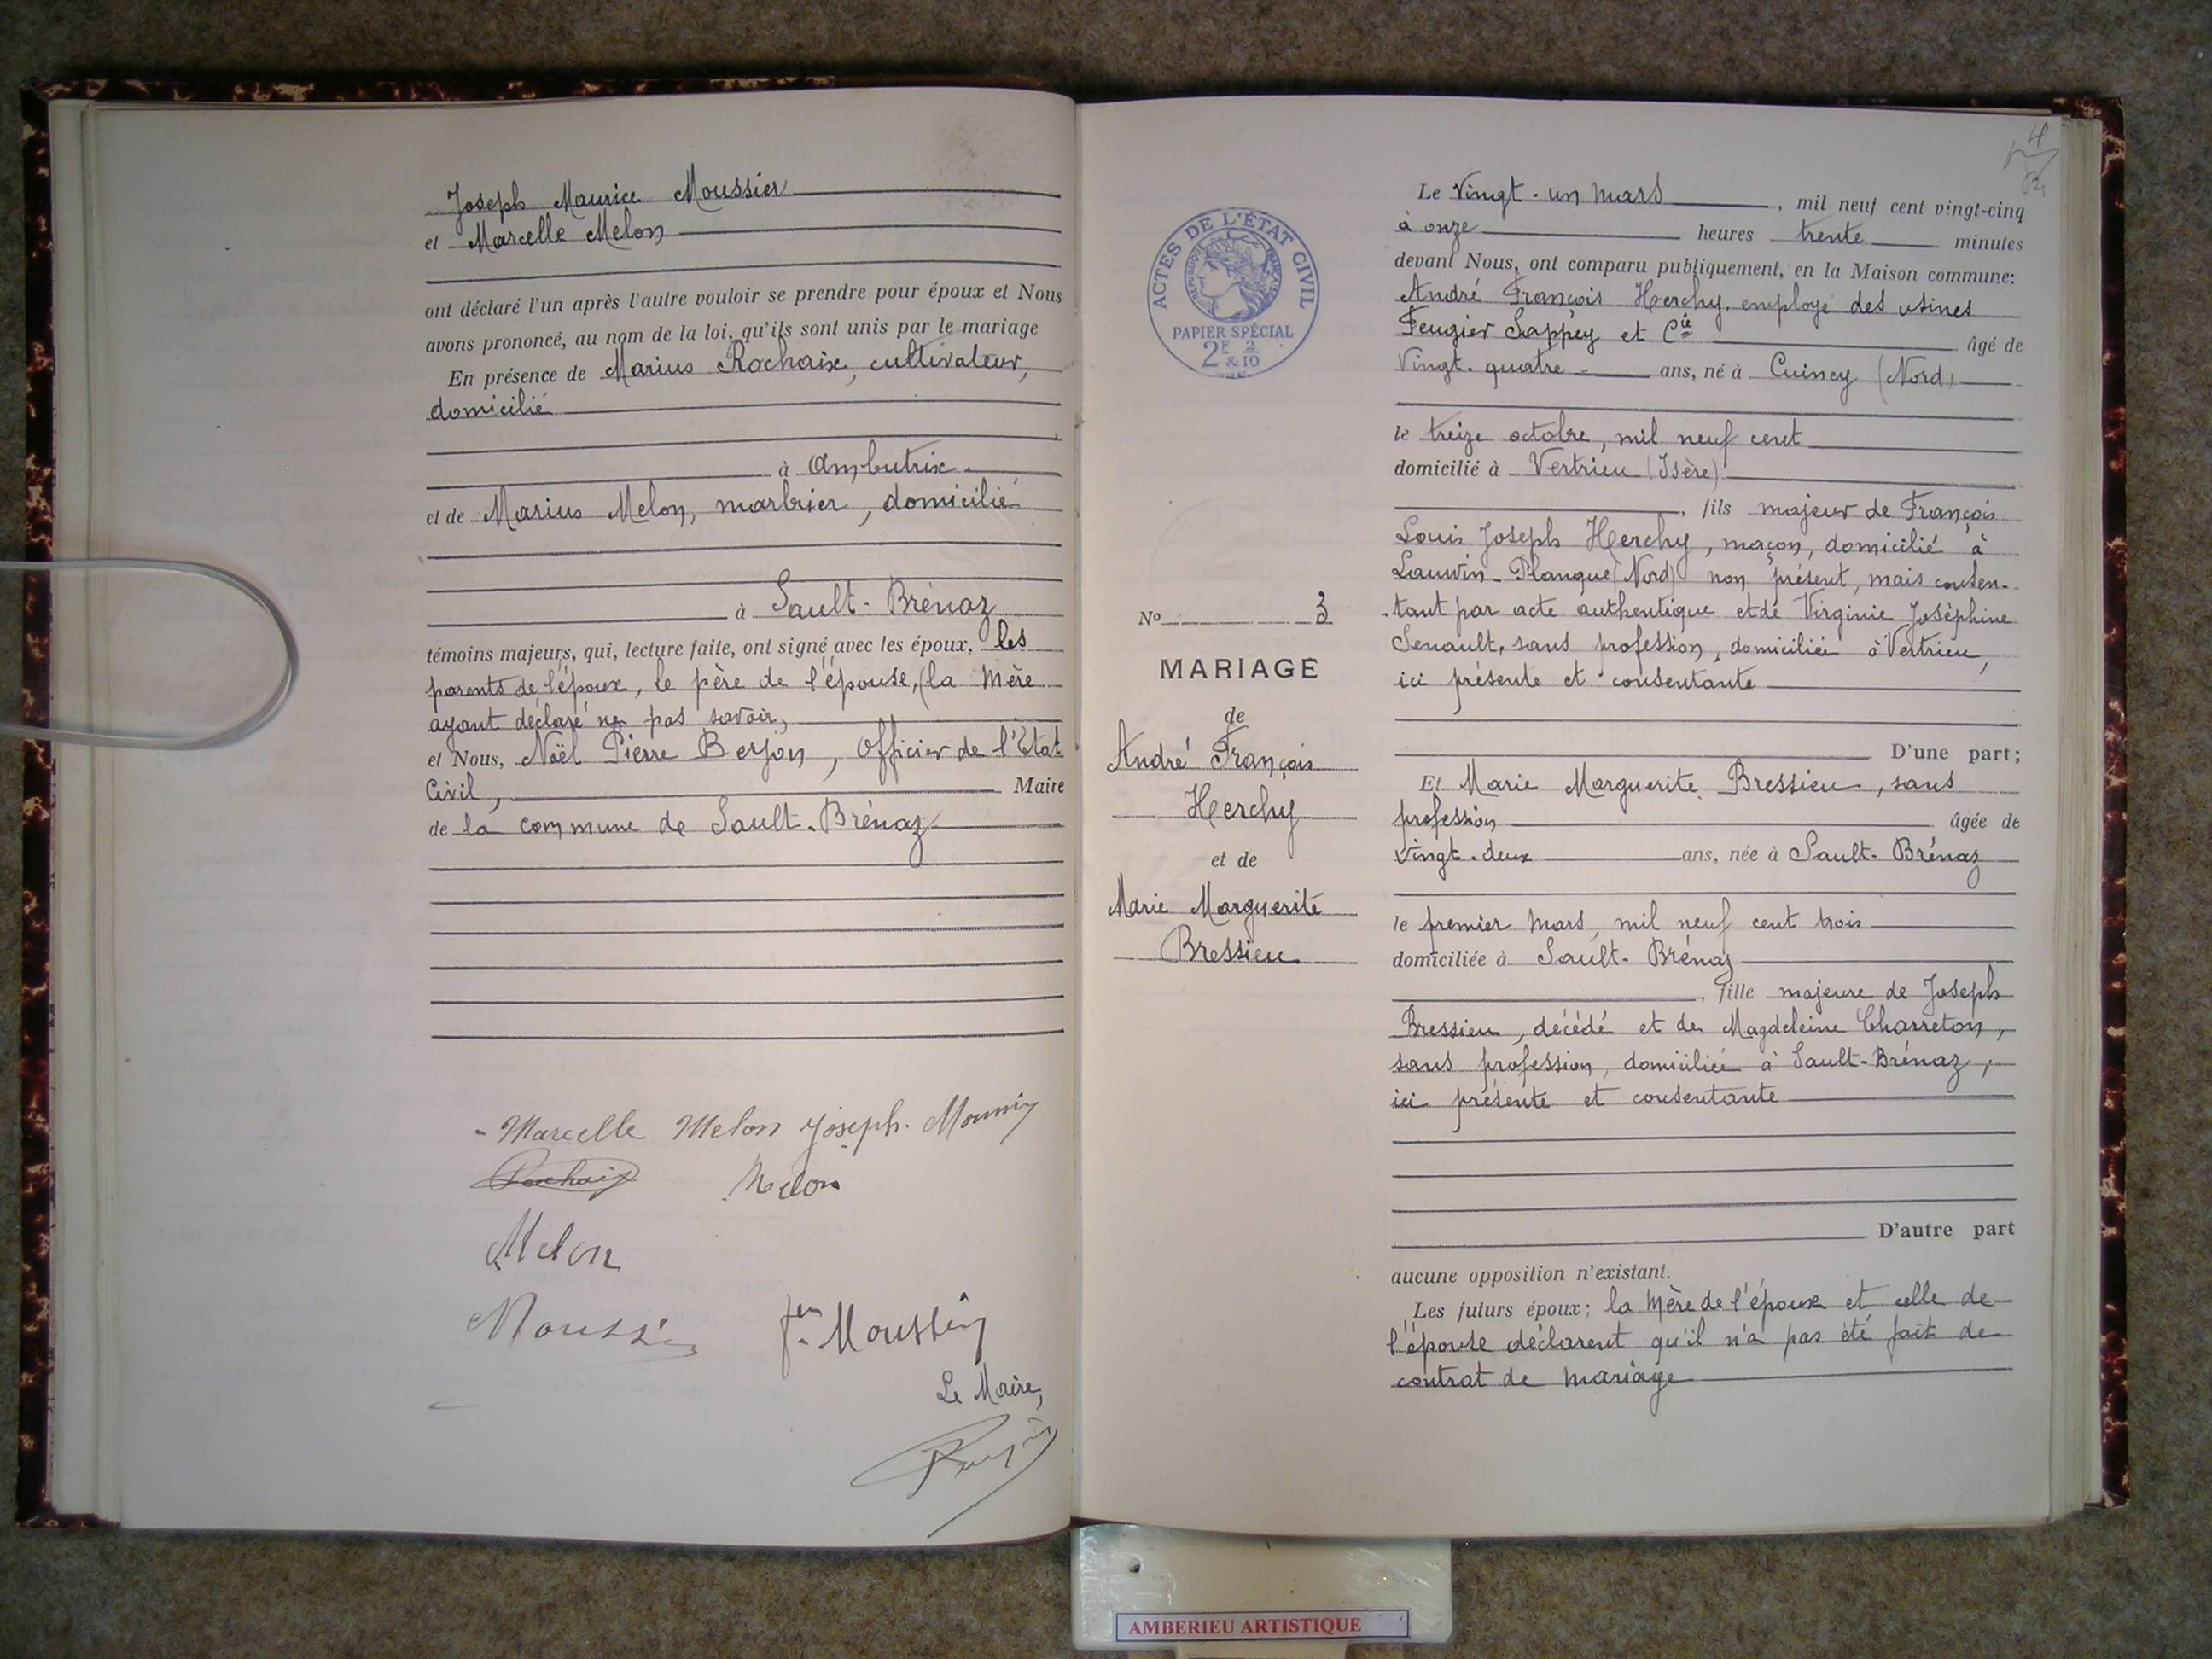 Joseph Maurice Moussier
et Marcelle Melon
ont déclaré l'un après l'autre vouloir se prendre pour époux et Nous
avons prononcé, au nom de la loi, qu'ils sont unis par le mariage
En présence de Marius Rochaix, cultivateur,
domicilié
à Ambutrix
et de Marius Melon, marbrier, domicilié
à Sault-Brénaz
témoins majeurs, qui, lecture faite, ont signé avec les époux, les
parents de l'époux, le père de l'épouse, (la mère
ayant déclaré ne pas savoir,
et Nous, Noël Pierre Berjon, Officier de l'Etat
Civil, Maire
de la commune de Sault-Brénaz
Marcelle Melon Joseph. Moussier
Rochaix Melon
Melon
Moussier Moussier
Le Maire,
4
ACTES DE L'ÉTAT CIVIL
RÉPUBLIQUE FRANÇAISE
PAPIER SPÉCIAL
2F & 2/10
No 3
MARIAGE
de
André François
Herchy
et de
Marie Marguerite
Bressieu
Le Vingt-un mars, mil neuf cent vingt-cinq
à onze heures trente minutes
devant Nous, ont comparu publiquement, en la Maison commune:
André François Herchy, employé des usines
Feugier Sappey et Cie âgé de
Vingt-quatre ans, né à Cuincy (Nord)
le treize octobre, mil neuf cent
domicilié à Vertrieu (Isère)
, fils majeur de François
Louis Joseph Herchy, maçon, domicilié à
Lauwin-Planque (Nord) non présent, mais consen-
-tant par acte authentique et de Virginie Joséphine
Senault, sans profession, domiciliée à Vertrieu,
ici présente et consentante
D'une part;
Et Marie Marguerite Bressieu, sans
profession âgée de
vingt-deux ans, née à Sault-Brénaz
le premier mars, mil neuf cent trois
domiciliée à Sault-Brénaz
, fille majeure de Joseph
Bressieu, décédé et de Magdeleine Charreton,
sans profession, domiciliée à Sault-Brénaz,
ici présente et consentante
D'autre part
aucune opposition n'existant.
Les futurs époux; la mère de l'époux et celle de
l'épouse déclarent qu'il n'a pas été fait de
contrat de mariage
AMBERIEU ARTISTIQUE